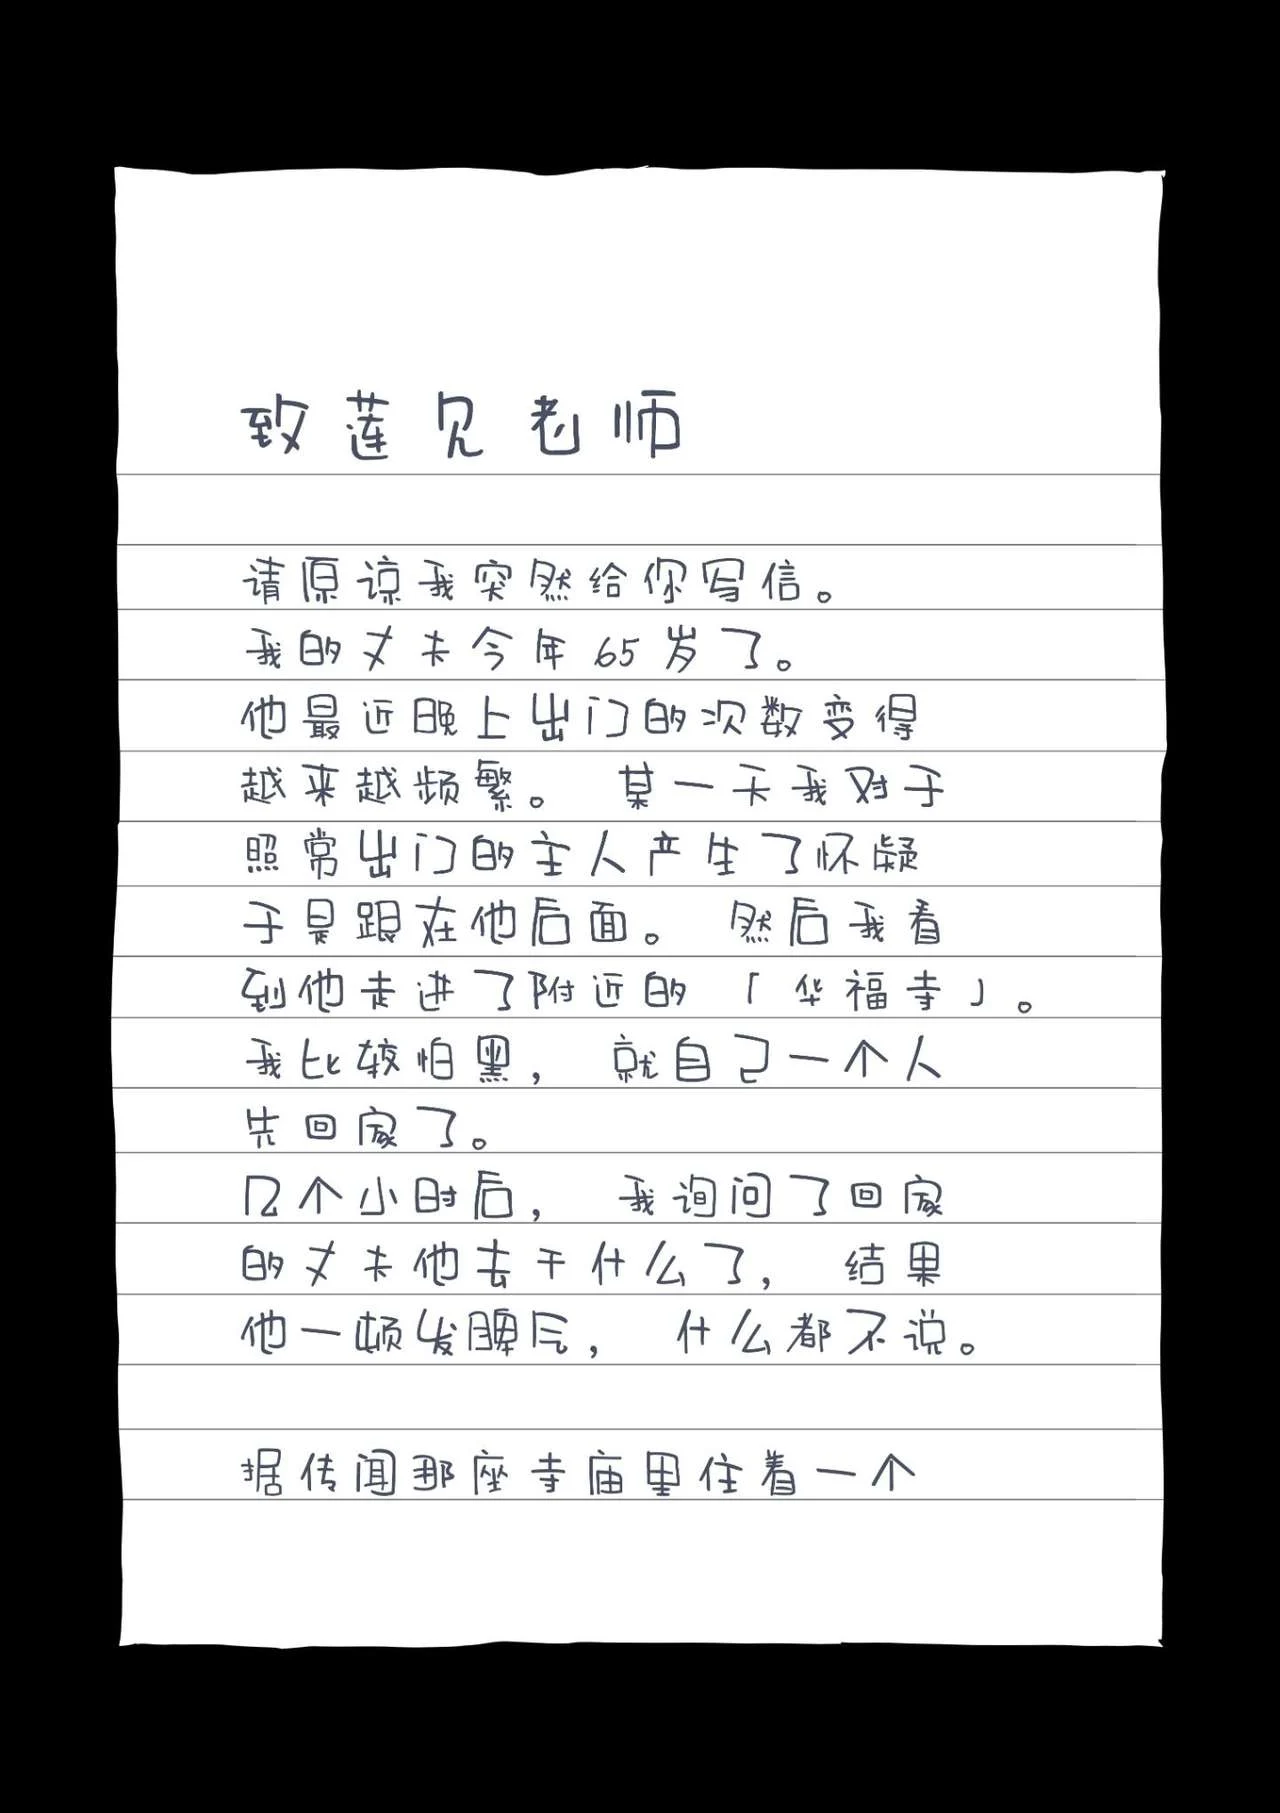 致莲见老师
请原谅我突然给你写信。
我的丈夫今年65岁了。
他最近晚上出门的次数变得
越来越频繁。 某一天我对于
照常出门的主人产生了怀疑
于是跟在他后面。 然后我看
到他走进了附近的「华福寺」。
我比较怕黑, 就自己一个人
先回家了。
几个小时后, 我询问了回家
的丈夫他去干什么了, 结果
他一顿发脾气, 什么都不说。
据传闻那座寺庙里住着一个